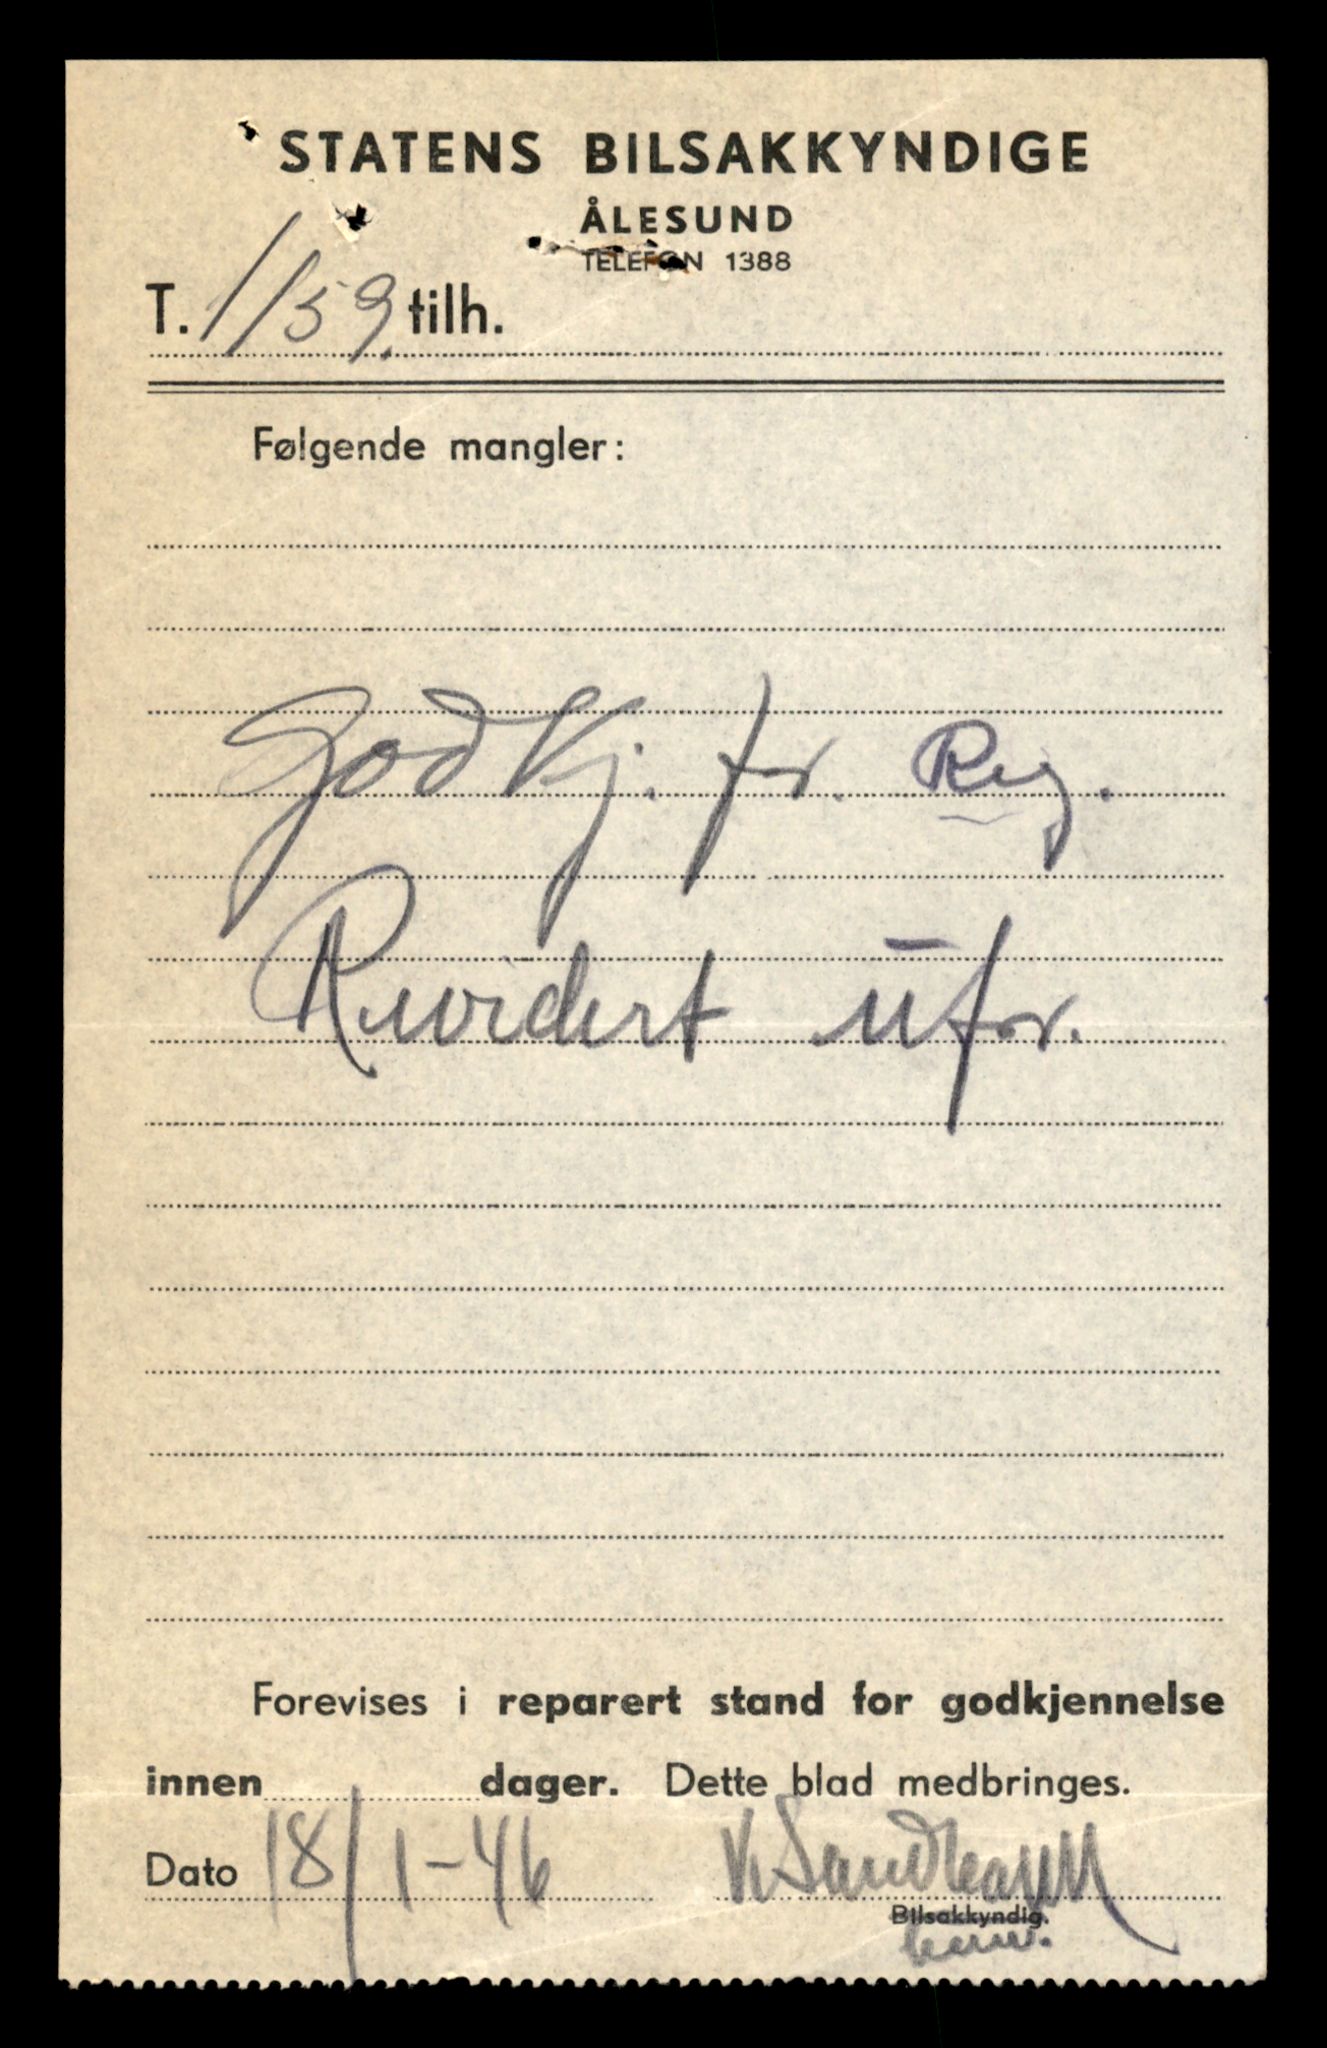 STATENS BILSAKKYNDIGE
ÅLESUND
TELEFON 1388
T. 1/59. tilh.
Følgende mangler:
Godkj. for. Reg.
Revidert utfør.
Forevises i reparert stand for godkjennelse
innen dager. Dette blad medbringes.
Dato 18/1-46
Bilsakkyndig.